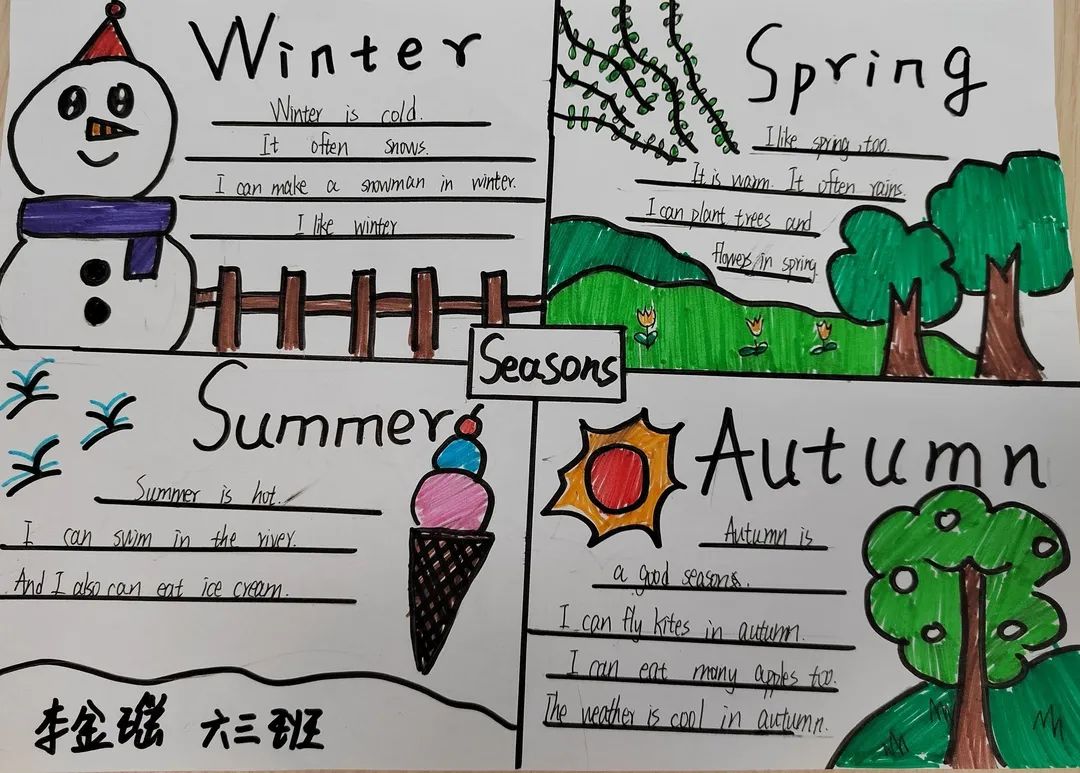 Winter
Winter is cold.
It often snows.
I can make a snowman in winter.
I like winter
Spring
I like spring too.
It is warm. It often rains.
I can plant trees and
flowers in spring.
Seasons
Summer
Summer is hot.
I can swim in the river.
And I also can eat ice cream.
Autumn
Autumn is
a good seasons.
I can fly kites in autumn.
I can eat many apples too.
The weather is cool in autumn.
李金瑶 六三班